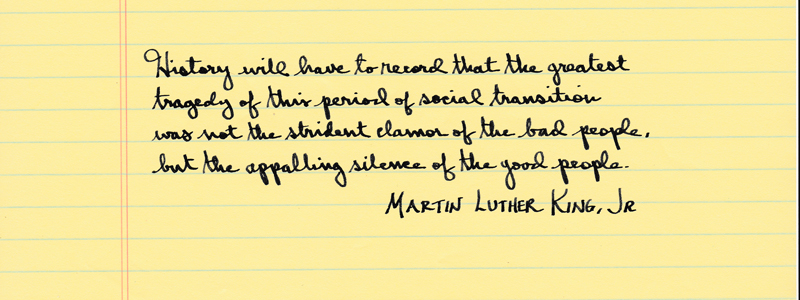 History will have to record that the greatest
tragedy of this period of social transition
was not the strident clamor of the bad people,
but the appalling silence of the good people.
MARTIN LUTHER KING, JR